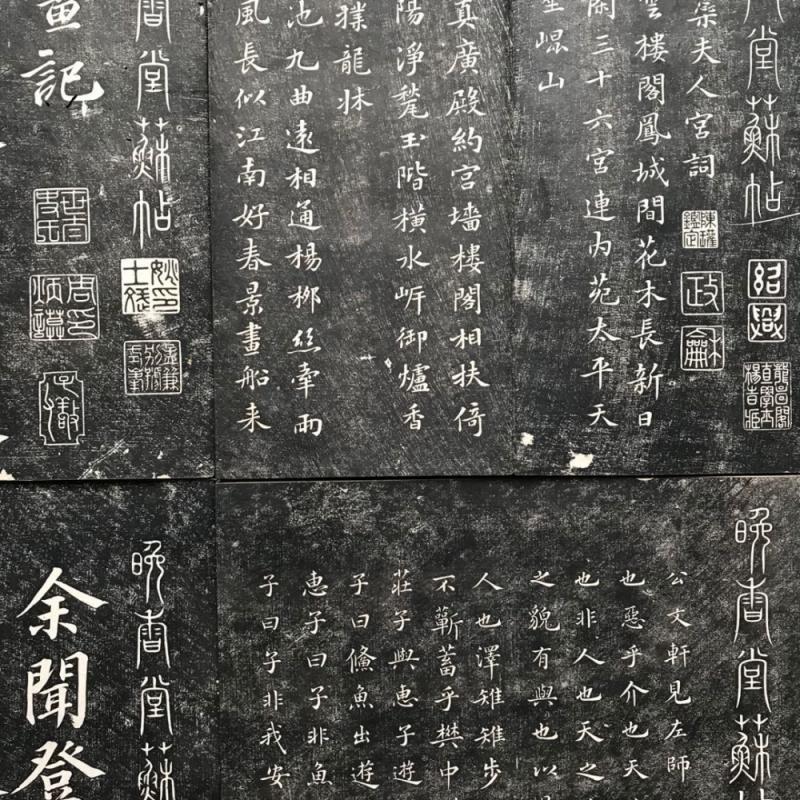 堂蘇帖
紹興
蘂夫人宮詞
陳瓘鑑定
政龢
雲樓閣鳳城間花木長新日
閑三十六宮連內苑太平天
坐崐山
真廣殿約宮墻樓閣相扶倚
陽淨甃玉階橫水岸御爐香
撲龍牀
池九曲遠相通楊柳絲牽兩
風長似江南好春景畫船来
香堂蘇帖
畫記
晚香堂蘇帖
公文軒見左師
也惡乎介也天
也非人也天之
之貌有與也以
人也澤雉雉步
不蘄蓄乎樊中
莊子與惠子遊
子曰儵魚出遊
惠子曰子非魚
子曰子非我安
晚香堂蘇
余聞登